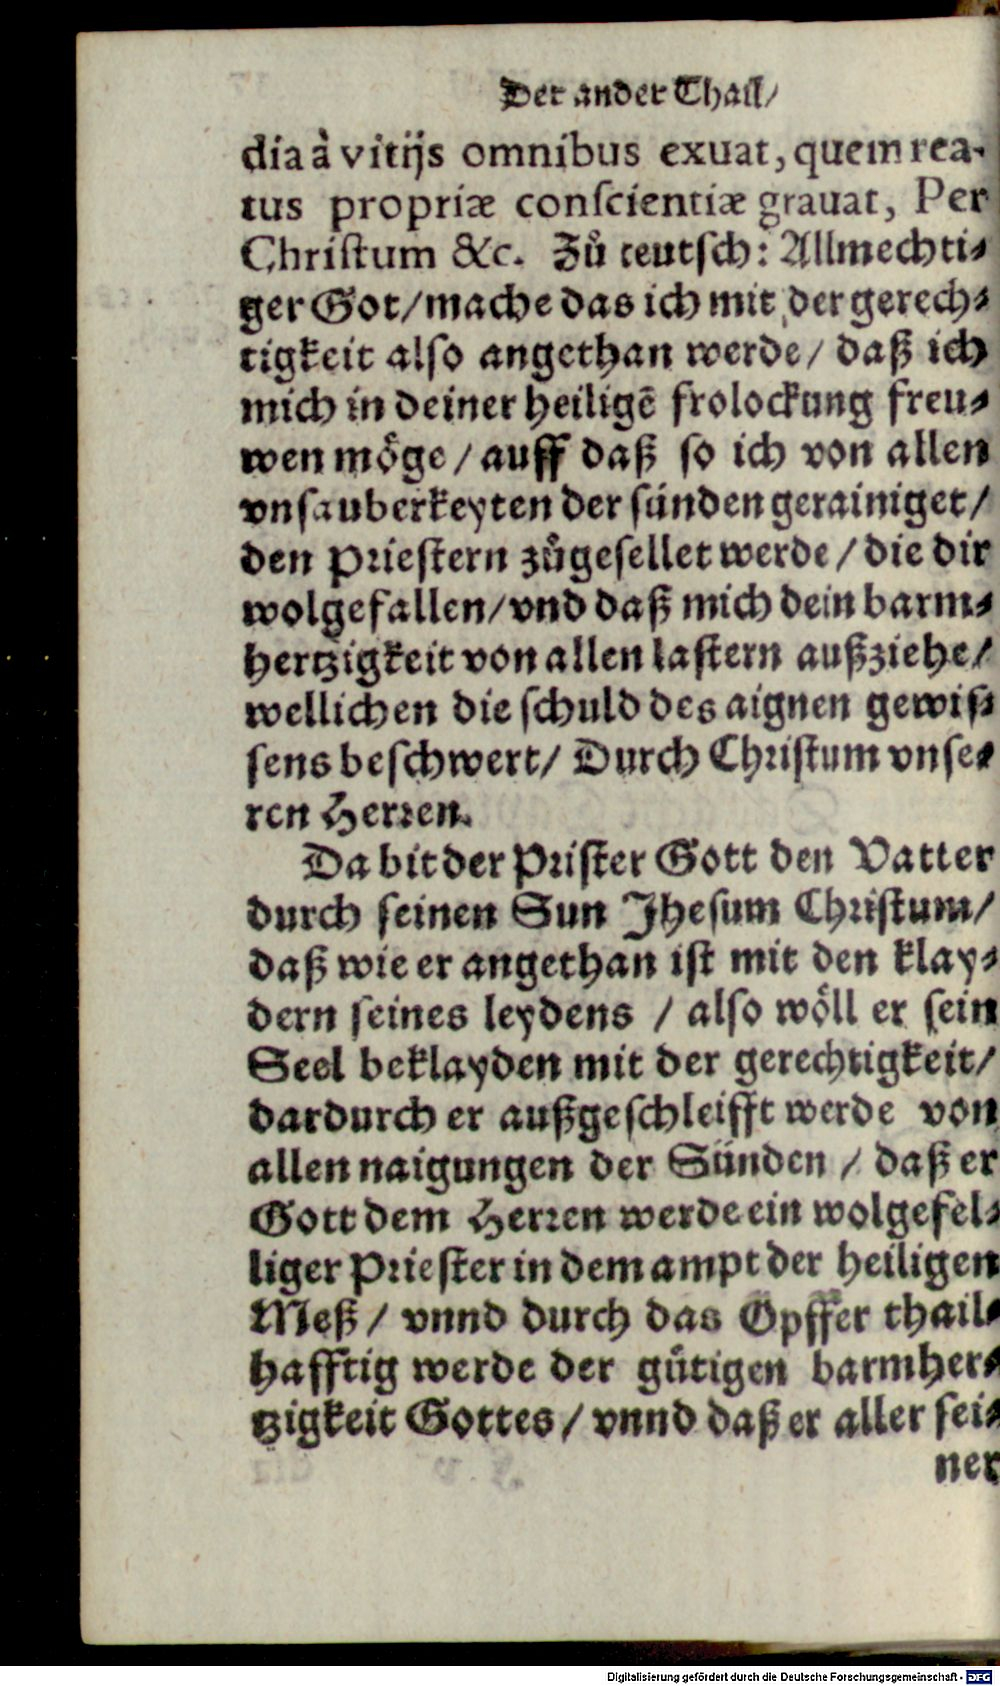 Der ander Thail/
dia à vitijs omnibus exuat, quem rea-
tus propriæ conſcientiæ grauat, Per
Chriſtum &c. Zů teutſch: Allmechti-
ger Got/mache das ich mit der gerech-
tigkeit alſo angethan werde/ daß ich
mich in deiner heiligē frolockung freu-
wen möge/ auff daß ſo ich von allen
vnſauberkeyten der ſünden gerainiget/
den Prieſtern zůgeſellet werde/ die dir
wolgefallen/ vnd daß mich dein barm-
hertzigkeit von allen laſtern außziehe/
wellichen die ſchuld des aignen gewiſ-
ſens beſchwert/ Durch Chriſtum vnſe-
ren Herren.
Da bit der Priſter Gott den Vatter
durch ſeinen Sun Jheſum Chriſtum/
daß wie er angethan iſt mit den klay-
dern ſeines leydens / alſo wöll er ſein
Seel beklayden mit der gerechtigkeit/
dardurch er außgeſchleifft werde von
allen naigungen der Sünden / daß er
Gott dem Herren werde ein wolgefel-
liger Prieſter in dem ampt der heiligen
Meß/ vnnd durch das Opffer thail-
hafftig werde der gütigen barmher-
tzigkeit Gottes/ vnnd daß er aller ſei-
ner
Digitalisierung gefördert durch die Deutsche Forschungsgemeinschaft - DFG